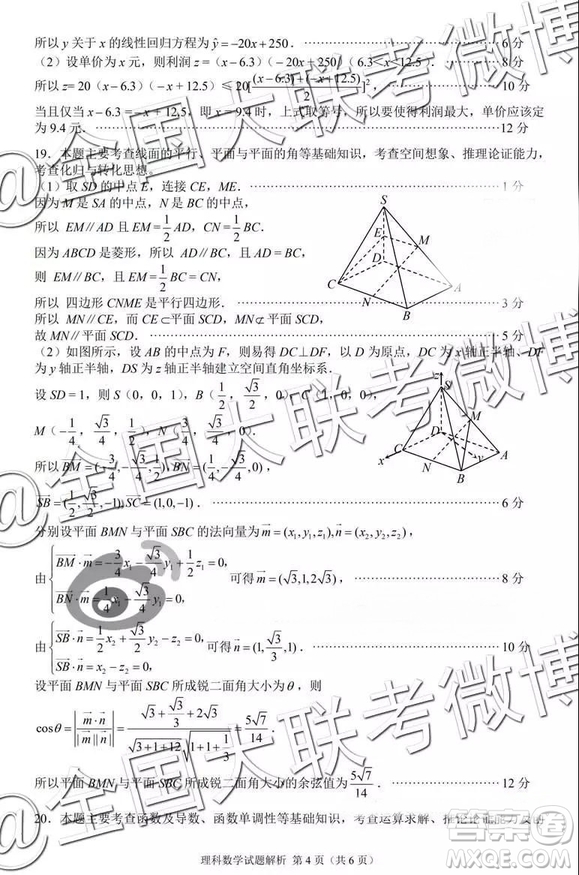 所以 y 关于 x 的线性回归方程为 ŷ=−20x+250． 6 分
（2）设单价为 x 元，则利润 z=（x−6.3）（−20x+250）（6.3<x<12.5）． 8 分
所以 z=20（x−6.3）（−x+12.5）≤20[((x−6.3)+(−x+12.5))/2]²， 10 分
当且仅当 x−6.3=−x+12.5，即 x=9.4 时，上式取等号，所以要使得利润最大，单价应该定
为 9.4 元． 12 分
19．本题主要考查线面的平行、平面与平面的角等基础知识，考查空间想象、推理论证能力，
考查化归与转化思想。
（1）取 SD 的中点 E，连接 CE，ME． 1 分
因为 M 是 SA 的中点，N 是 BC 的中点，
所以 EM∥AD 且 EM=1/2AD，CN=1/2BC．
因为 ABCD 是菱形，所以 AD∥BC，且 AD=BC，
则 EM∥BC，且 EM=1/2BC=CN，
所以 四边形 CNME 是平行四边形． 3 分
所以 MN∥CE，而 CE⊂平面 SCD，MN⊄平面 SCD，
故 MN∥平面 SCD． 5 分
S
E
M
D
C
N
B
A
（2）如图所示，设 AB 的中点为 F，则易得 DC⊥DF，以 D 为原点，DC 为 x 轴正半轴、DF
为 y 轴正半轴，DS 为 z 轴正半轴建立空间直角坐标系．
设 SD=1，则 S（0，0，1），B（1/2，√3/2，0），C（1，0，0），
M（−1/4，√3/4，1/2），N（3/4，√3/4，0），
所以 BM=(−3/4,−√3/4,1/2)，BN=(1/4,−√3/4,0)，
SB=(1/2,√3/2,−1)，SC=(1,0,−1)． 6 分
z
S
M
D
C
A
x
N
B
y
分别设平面 BMN 与平面 SBC 的法向量为 m=(x₁,y₁,z₁),n=(x₂,y₂,z₂)，
由{BM·m=−3/4x₁−√3/4y₁+1/2z₁=0,
BN·m=1/4x₁−√3/4y₁=0, 可得 m=(√3,1,2√3)， 8 分
由{SB·n=1/2x₂+√3/2y₂−z₂=0,
SC·n=x₂−z₂=0, 可得 n=(1,√3/3,1)． 10 分
设平面 BMN 与平面 SBC 所成锐二面角大小为 θ，则
cosθ=|m·n/(|m||n|)|=(√3+√3/3+2√3)/(√(3+1+12)√(1+1+1/3))=5√7/14．
所以平面 BMN 与平面 SBC 所成锐二面角大小的余弦值为 5√7/14． 12 分
20．本题主要考查函数及导数、函数单调性等基础知识，考查运算求解、推论论证能力及函
理科数学试题解析 第 4 页（共 6 页）
@全国大联考微博
@全国大联考微博
@全国大联考微博